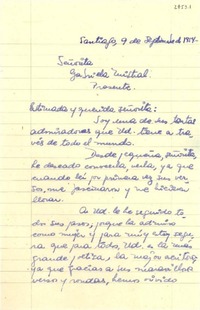 Santiago, 9 de Septiembre de 1954.
Señorita
Gabriela Mistral.
Presente.
Estimada y querida señorita:
Soy una de sus tantas
admiradoras que Ud. tiene a tra-
vés de todo el mundo.
Desde pequeña, señorita,
he deseado conocerla, ya que
cuando leí por primera vez sus ver-
sos, me fascinaron y me hicieron
llorar.
A Ud. le he seguido to-
dos sus pasos, porque la admiro
como mujer y para muy
para todo, Ud. es la más
grande, la mejor
ya que gracias a sus maravillosos
versos y rondas, hemos vivido